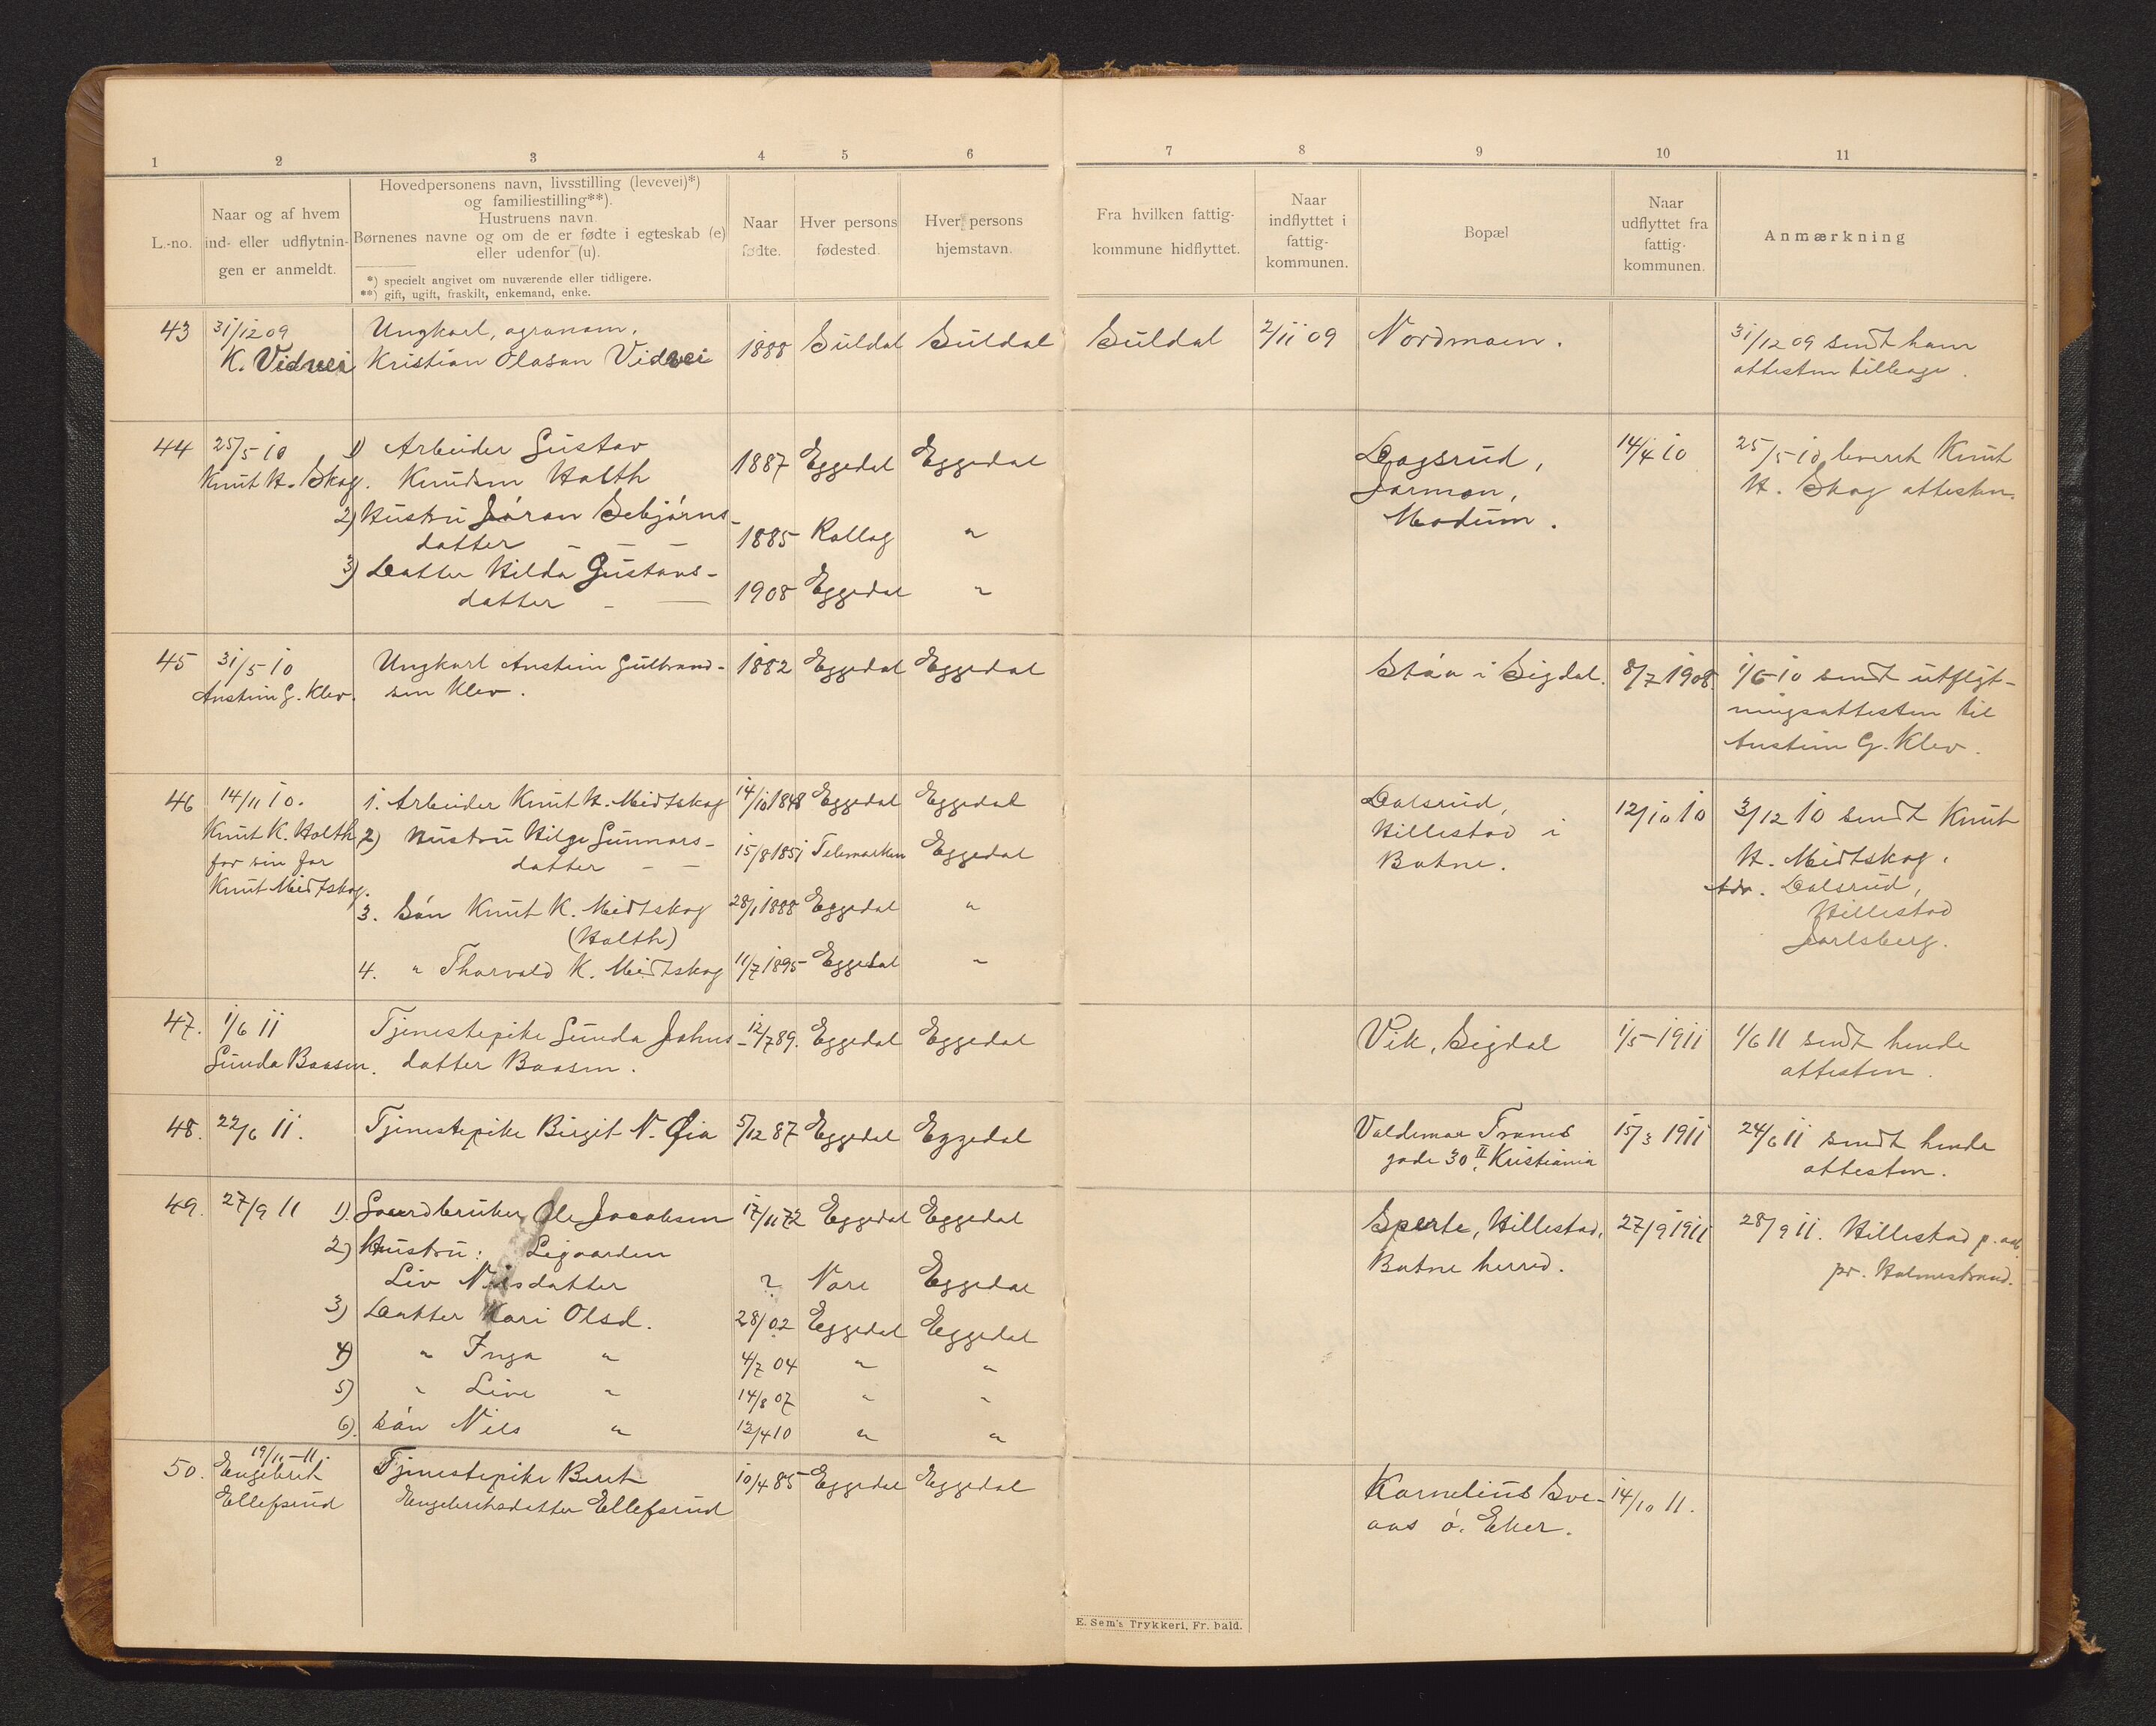 1 2 3 4 5 6 7 8 9 10 11
L.-no.
Naar og af hvem
ind- eller udflytnin-
gen er anmeldt.
Hovedpersonens navn, livsstilling (levevei)*)
og familiestilling**).
Hustruens navn.
Børnenes navne og om de er fødte i egteskab (e)
eller udenfor (u).
*) specielt angivet om nuværende eller tidligere.
**) gift, ugift, fraskilt, enkemand, enke.
Naar
fødte.
Hver persons
fødested.
Hver persons
hjemstavn.
Fra hvilken fattig-
kommune hidflyttet.
Naar
indflyttet i
fattig-
kommunen.
Bopæl
Naar
udflyttet fra
fattig-
kommunen.
Anmærkning
43 31/12 09
K. Vidvei
Ungkarl, agronom.
Kristian Olason Vidvei
1888 Suldal Suldal Suldal 2/11 09 Nordmoen.
31/12 09 sendt ham
attesten tilbage.
44 25/5-10
Knut H. Skog.
1) Arbeider Gustav
Knudsen Holth
1887 Eggedal Eggedal
2) Hustru Jöran Sebjörns-
datter - - -
1885 Rollag "
3) Datter Hilda Gustavs-
datter - —
1908 Eggedal "
Dagsrud,
Jarmon,
Modum.
14/4 10
25/5-10 leveret Knut
H. Skog attesten.
45 31/5-10
Anstein G. Klev.
Ungkarl Anstein Gulbrand-
sen Klev.
1882 Eggedal Eggedal
Støa i Sigdal. 8/7 1908.
1/6-10 sendt utflyt-
ningsattesten til
Anstein G. Klev.
46 14/11 10.
Knut K. Holth
for sin far
Knut Midtskog.
1. Arbeider Knut H. Midtskog 14/10 1848 Eggedal Eggedal
2) Hustru Hilge Gunnars-
datter - - 15/8 1851 Telemarken Eggedal
3. Sön Knut K. Midtskog 28/1 1888 Eggedal "
(Holth)
4. " Thorvald K. Midtskog 11/7 1895 Eggedal "
Dalsrud,
Hillestad i
Botne.
12/10 10
3/12 10 sendt Knut
H. Midtskog.
Adr. Dalsrud,
Hillestad
Jarlsberg.
47. 1/6 11
Gunda Baasen.
Tjenestepike Gunda Johns-
datter Baasen.
12/7 89. Eggedal Eggedal
Vik, Sigdal 1/5-1911
1/6 11 sendt hende
attesten.
48. 22/6 11.
Tjenestepike Birgit N. Øia 5/12 87 Eggedal Eggedal
Valdemar Tranes
gade 30 II, Kristiania
15/3 1911
24/6 11 sendt hende
attesten.
49. 27/9 11
1). Gaardbruker Ole Jacobsen 17/11 72 Eggedal Eggedal
2) Hustru: Ligaarden
Liv Nilsdatter ? Nore Eggedal
3) Datter Kari Olsd. 28/02 Eggedal Eggedal
4) " Inga " 4/7 04 " "
5) " Live " 14/8 07 " "
6). Sön Nils " 12/4 10 " "
Sperte, Hillestad,
Botne herred.
27/9 1911
28/9 11. Hillestad p. aab.
pr. Holmestrand.
50. 19/10-11.
Engebret
Ellefsrud
Tjenestepike Berit
Engebretsdatter Ellefsrud
10/4 85 Eggedal Eggedal
Kornelius Sve-
aas ö. Eker.
14/10 11.
E. Sem's Trykkeri, Fr. hald.